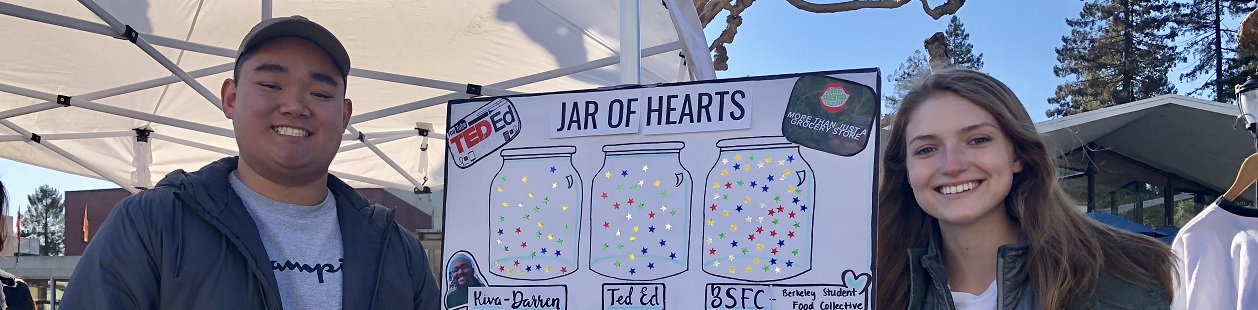 JAR OF HEARTS
TED Ed
MORE THAN JUST A
GROCERY STORE
ampi
Kiva-Darren
Ted Ed
BSFC - Berkeley Student
Food Collective